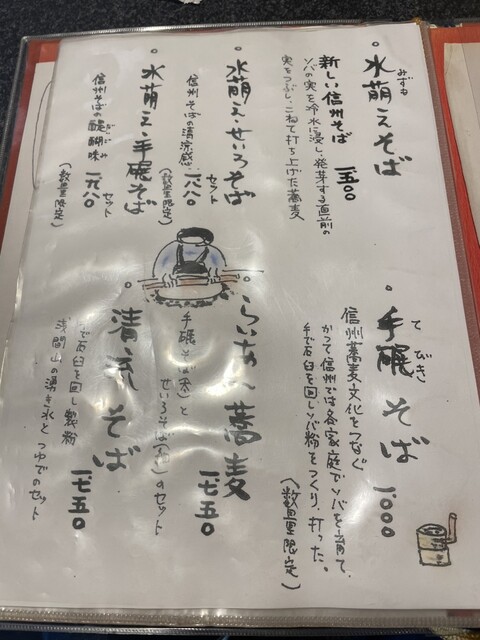 水萌えそば
みずもえ
新しい信州そば 一五〇〇
ソバの実を冷水に浸し、発芽する直前の
実をつぶし、こねて打ち上げた蕎麦
水萌え・せいろそば
セット
信州そばの清涼感… 一八八〇
(数量限定)
水萌え・手碾そば
セット
信州そばの醍醐味 一九八〇
(数量限定)
手碾そば 一〇〇〇
てびき
信州蕎麦文化をつなぐ
かつて信州では各家庭でソバを育て、
手で石臼を回しソバ粉をつくり、打った。
(数量限定)
蕎麦 一七五〇
手碾そば と
せいろそば のセット
清流そば 一七五〇
手で石臼を回し製粉
浅間山の湧き水とつゆでのセット